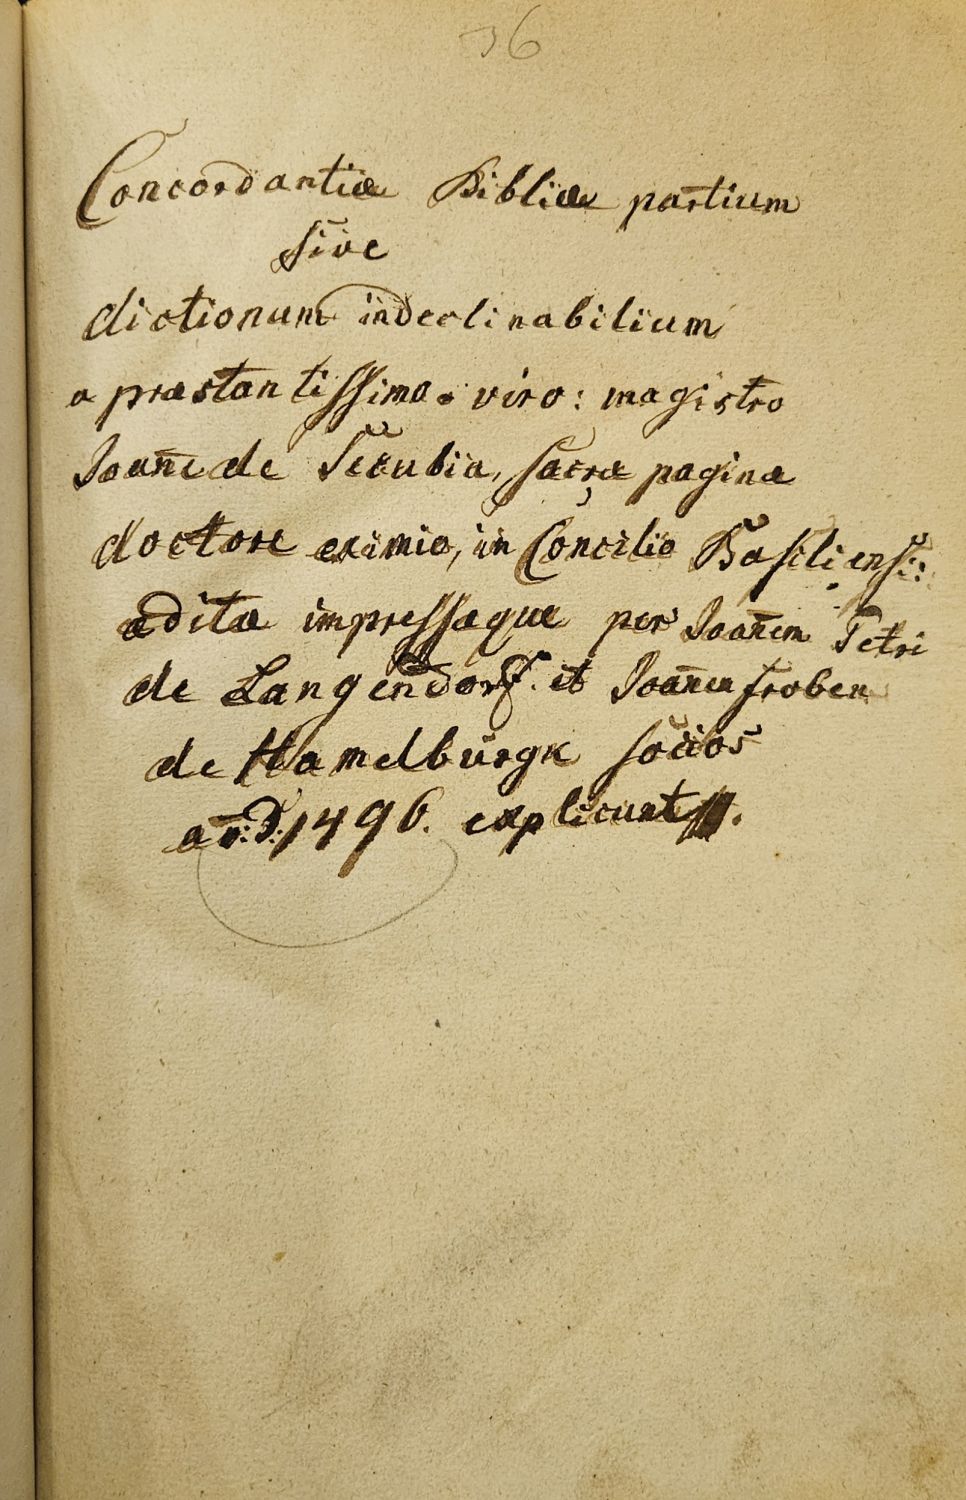 36
Concordantiæ Bibliæ partium
sive
dictionum indeclinabilium
a præstantissimo viro: magistro
Joan̄e de Secubia, sacræ paginæ
doctore eximio, in Concilio Basiliensi:
æditæ impressæque per Joan̄em Petri
de Langendorff. et Joan̄em froben
de Hamelburgk socios
1496. explicunt